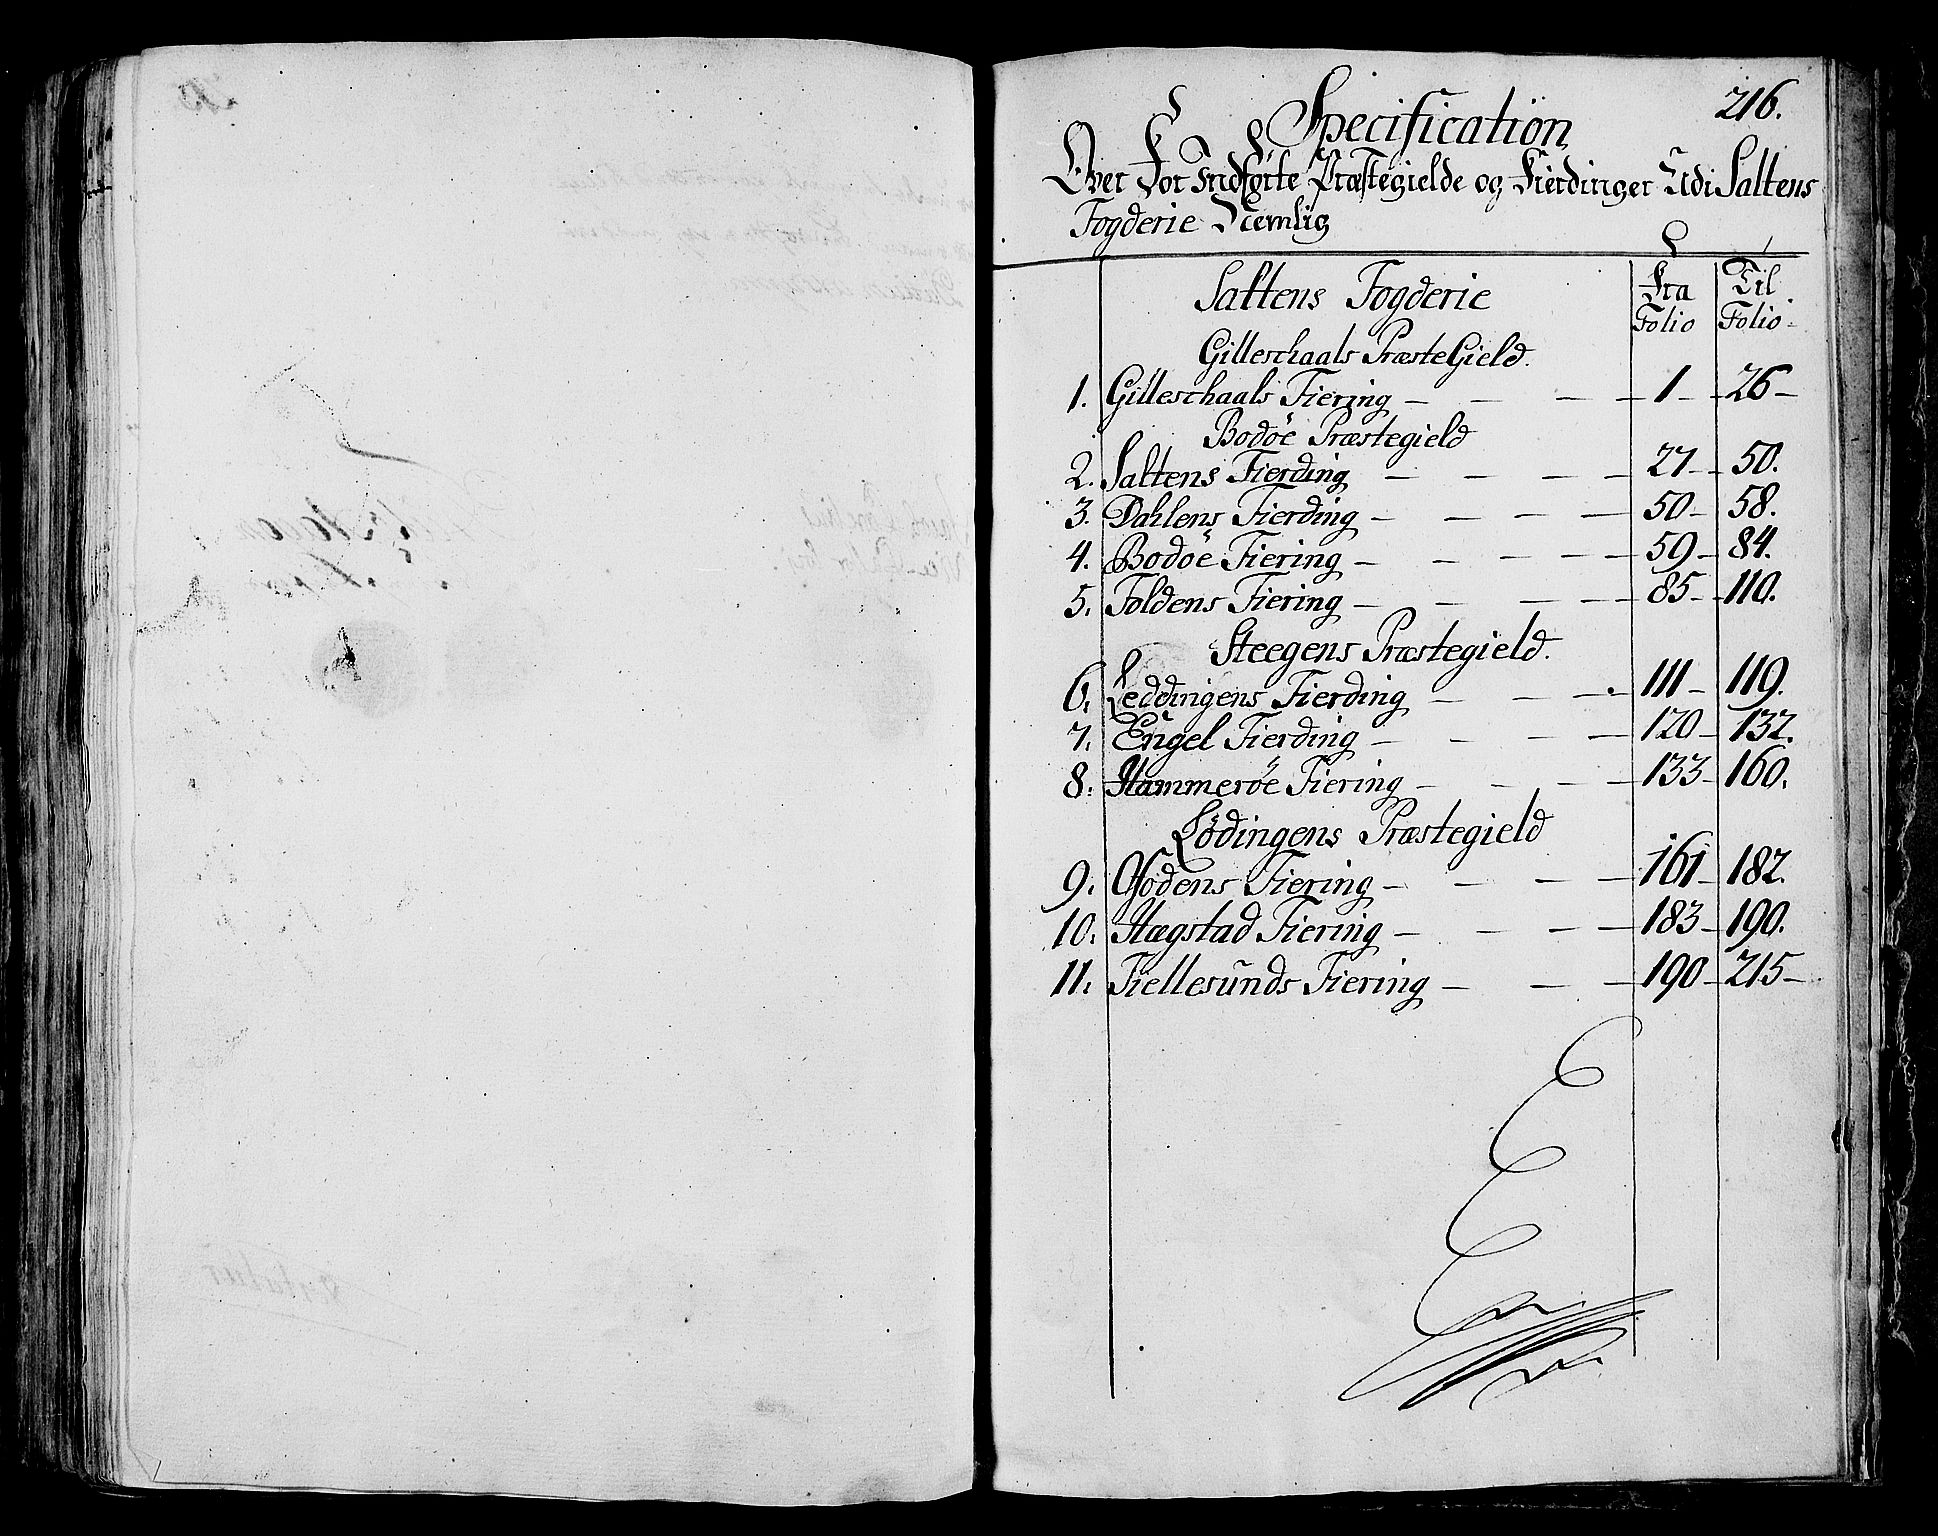 216.
Specification
Over For Indførte Præstegielde og Fierdinger Udi Saltens
Fogderie Nemlig
Saltens Fogderie Fra Folio Til Folio
Gilleschaals PræsteGield.
1. Gilleschaals Fiering — — — 1 — 26 —
Bodøe Præstegield
2. Saltens Fierding — — — 27 — 50.
3. Dahlens Fierding — — — 50 — 58.
4. Bodøe Fiering — — — 59 — 84.
5. Foldens Fiering — — — 85 — 110.
Steegens Præstegield.
6. Leddingens Fierding — — — 111 — 119.
7. Engel Fierding — — — 120 — 132.
8. Hammerøe Fiering — — — 133 — 160.
Lødingens Præstegield
9. Ofodens Fiering — — — 161 — 182.
10. Hægstad Fiering — — — 183 — 190.
11. Fiellesunds Fiering — — — 190 — 215 —